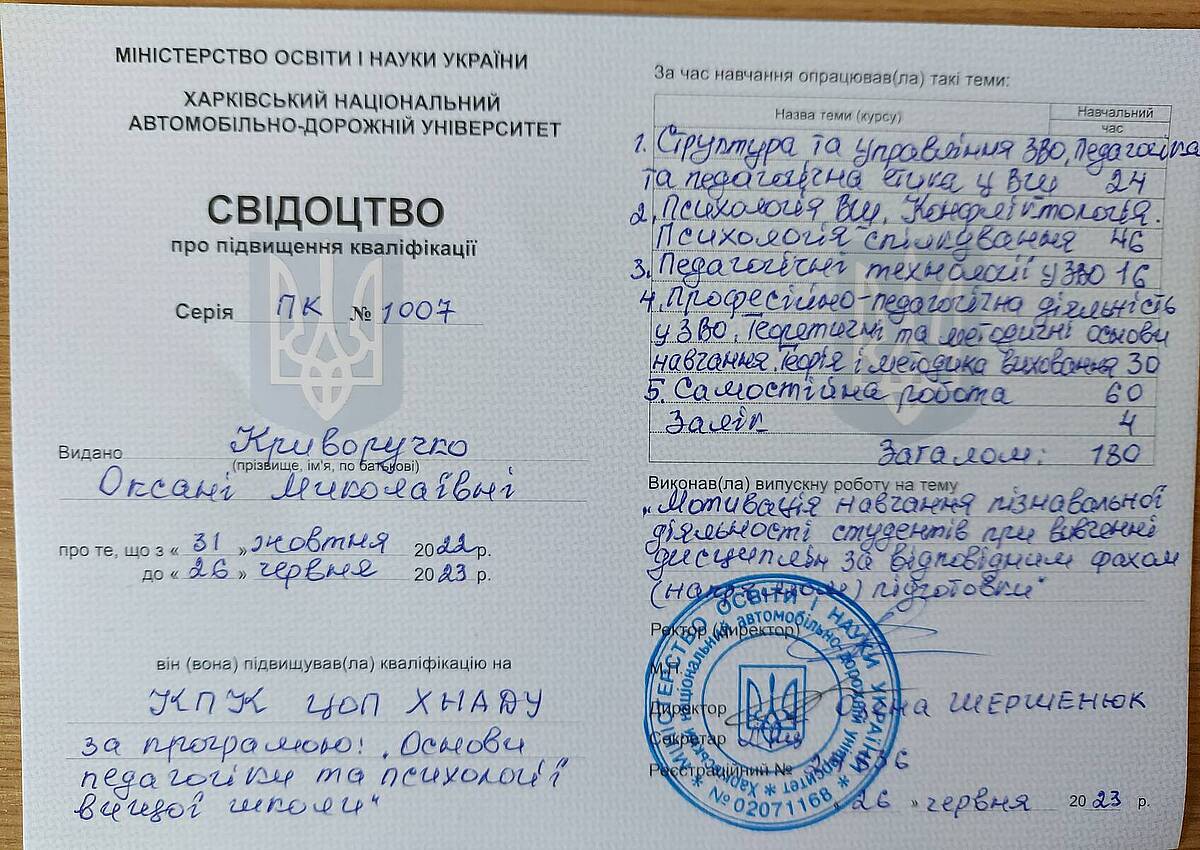 МІНІСТЕРСТВО ОСВІТИ І НАУКИ УКРАЇНИ
ХАРКІВСЬКИЙ НАЦІОНАЛЬНИЙ
АВТОМОБІЛЬНО-ДОРОЖНІЙ УНІВЕРСИТЕТ
СВІДОЦТВО
про підвищення кваліфікації
Серія ПК № 1007
Видано Криворучко
(прізвище, ім'я, по батькові)
Оксані Миколаївні
про те, що з « 31 » жовтня 2022 р.
до « 26 » червня 2023 р.
він (вона) підвищував(ла) кваліфікацію на
КПК ЦОП ХНАДУ
за програмою: „Основи
педагогіки та психології
вищої школи“
За час навчання опрацював(ла) такі теми:
Назва теми (курсу) Навчальний
час
1. Структура та управління ЗВО, Педагогіка
та педагогічна етика у ВШ 24
2. Психологія ВШ. Конфліктологія.
Психологія спілкування 46
3. Педагогічні технології у ЗВО 16
4. Професійно-педагогічна діяльність
у ЗВО. Теоретичні та методичні основи
навчання. Теорія і методика виховання 30
5. Самостійна робота 60
Залік 4
Загалом: 180
Виконав(ла) випускну роботу на тему
„Мотивація навчання пізнавальної
діяльності студентів при вивченні
дисциплін за відповідним фахом
(напрямком) підготовки“
Ректор (директор)
М.П.
Директор ШЕРШЕНЮК
Секретар
Реєстраційний №
« 26 » червня 2023 р.
МІНІСТЕРСТВО ОСВІТИ І НАУКИ УКРАЇНИ
Харківський національний автомобільно-дорожній університет
№ 02071168